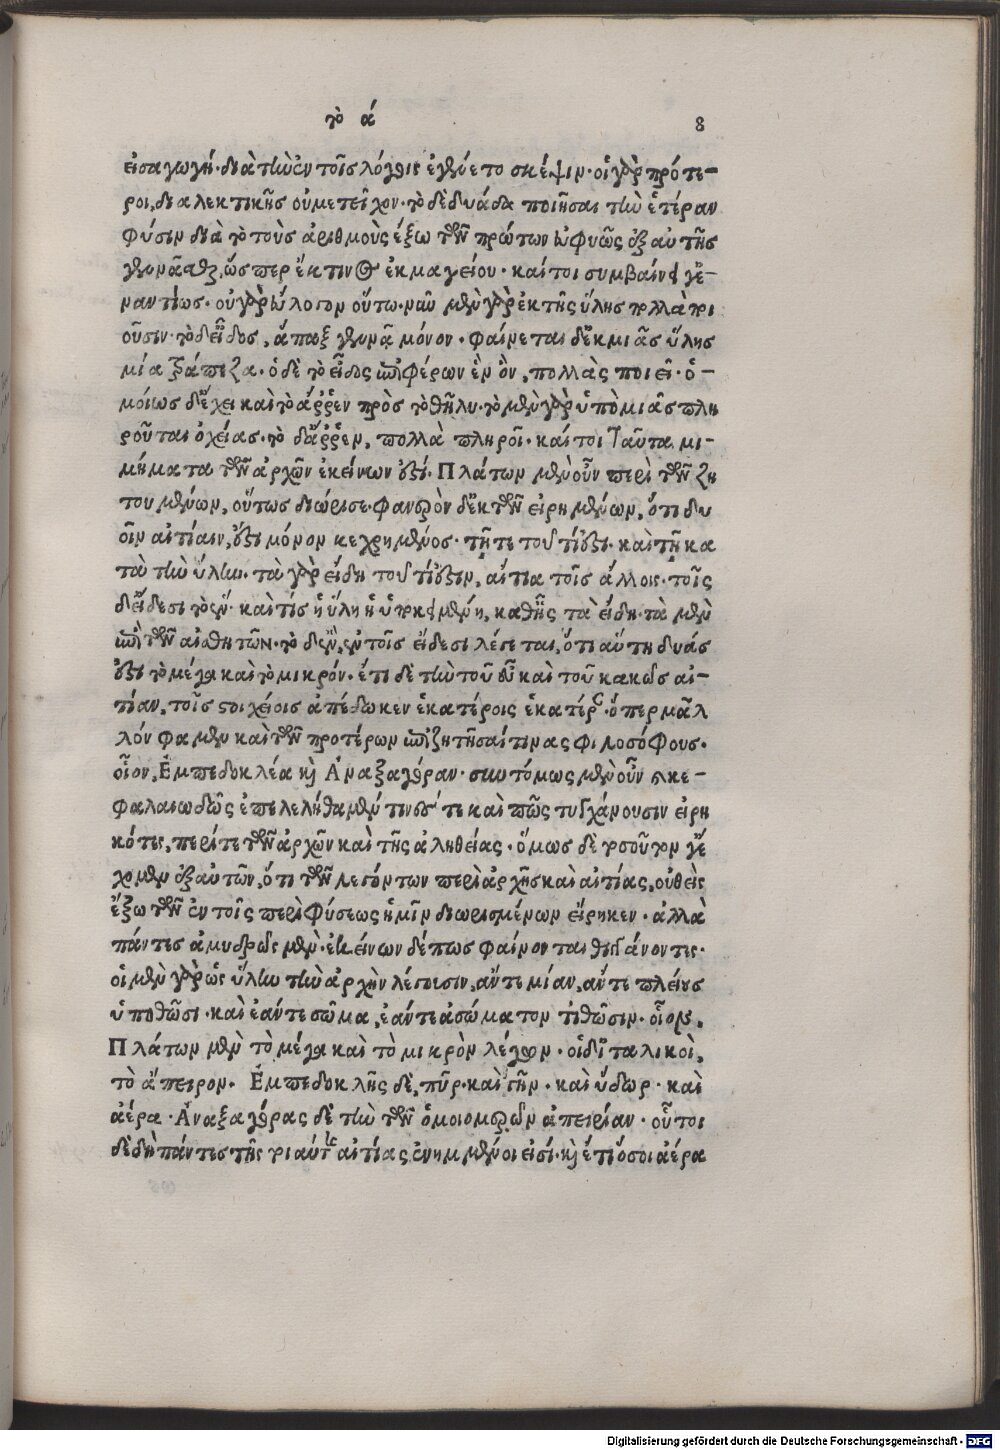 τὸ ά 8
εἰσαγωγή· διὰ τὴν ἐν τοῖς λόγοις ἐγένετο σκέψιν· οἱ γὰρ πρότε-
ροι, διαλεκτικῆς οὐ μετεῖχον· τὸ δὲ δυάδα ποιῆσαι τὴν ἑτέραν
φύσιν διὰ τὸ τοὺς ἀριθμοὺς ἔξω τῶν πρώτων εὐφυῶς ἐξ αὐτῆς
γεννᾶσθαι, ὥσπερ ἔκ τινος ἐκμαγείου· καίτοι συμβαίνει γ' ἐ-
ναντίως· οὐ γὰρ εὔλογον οὕτω· νῦν μὲν γὰρ ἐκ τῆς ὕλης πολλὰ ποι
οῦσιν· τὸ δ' εἶδος, ἅπαξ γεννᾷ μόνον· φαίνεται δ' ἐκ μιᾶς ὕλης
μία τράπεζα· ὁ δὲ τὸ εἶδος ἐπιφέρων ἓν ὂν, πολλὰς ποιεῖ· ὁ-
μοίως δ' ἔχει καὶ τὸ ἄῤῥεν πρὸς τὸ θῆλυ· τὸ μὲν γὰρ ὑπὸ μιᾶς πλη
ροῦται ὀχείας· τὸ δ' ἄῤῥεν, πολλὰ πληροῖ· καίτοι ταῦτα μι-
μήματα τῶν ἀρχῶν ἐκείνων ἐστί· Πλάτων μὲν οὖν περὶ τῶν ζη
τουμένων, οὕτως διώρισε· φανερὸν δ' ἐκ τῶν εἰρημένων, ὅτι δυ
οῖν αἰτίαιν, ἐστι μόνον κεχρημένος· τῇ τε τοῦ τί ἐστι· καὶ τῇ κα
τὰ τὴν ὕλην· τὰ γὰρ εἴδη τοῦ τί ἐστιν, αἴτια τοῖς ἄλλοις· τοῖς
δ' εἴδεσι τὸ ἕν· καὶ τίς ἡ ὕλη ἡ ὑποκειμένη, καθ' ἧς τὰ εἴδη· τὰ μὲν
ἐπὶ τῶν αἰσθητῶν· τὸ δ' ἓν, ἐν τοῖς εἴδεσι λέγεται, ὅτι αὕτη δυάς
ἐστι τὸ μέγα καὶ τὸ μικρόν· ἔτι δὲ τὴν τοῦ εὖ καὶ τοῦ κακῶς αἰ-
τίαν, τοῖς στοιχείοις ἀπέδωκεν ἑκατέροις ἑκατέραν· ὅπερ μᾶλ
λόν φαμεν καὶ τῶν προτέρων ἐπιζητῆσαί τινας φιλοσόφους·
οἷον, Ἐμπεδοκλέα καὶ Ἀναξαγόραν· συντόμως μὲν οὖν καὶ κε-
φαλαιωδῶς ἐπεληλύθαμεν τίνες τε καὶ πῶς τυγχάνουσιν εἰρη
κότες, περί τε τῶν ἀρχῶν καὶ τῆς ἀληθείας· ὅμως δὲ τοσοῦτόν γ' ἔ
χομεν ἐξ αὐτῶν, ὅτι τῶν λεγόντων περὶ ἀρχῆς καὶ αἰτίας, οὐθεὶς
ἔξω τῶν ἐν τοῖς περὶ φύσεως ἡμῖν διωρισμένων εἴρηκεν· ἀλλὰ
πάντες ἀμυδρῶς μὲν· ἐκείνων δέ πως φαίνονται θιγγάνοντες·
οἱ μὲν γὰρ ὡς ὕλην τὴν ἀρχὴν λέγουσιν, ἄν τε μίαν, ἄν τε πλείους
ὑποθῶσι· καὶ ἐάν τε σῶμα, ἐάν τε ἀσώματον τιθῶσιν· οἷον,
Πλάτων μὲν τὸ μέγα καὶ τὸ μικρὸν λέγων· οἱ δ' Ἰταλικοὶ,
τὸ ἄπειρον· Ἐμπεδοκλῆς δὲ, πῦρ· καὶ γῆν· καὶ ὕδωρ· καὶ
ἀέρα· Ἀναξαγόρας δὲ τὴν τῶν ὁμοιομερῶν ἀπειρίαν· οὗτοι
δὲ δὴ πάντες τῆς τοιαύτης αἰτίας ἡμμένοι εἰσί· καὶ ἔτι ὅσοι ἀέρα
Digitalisierung gefördert durch die Deutsche Forschungsgemeinschaft - DFG